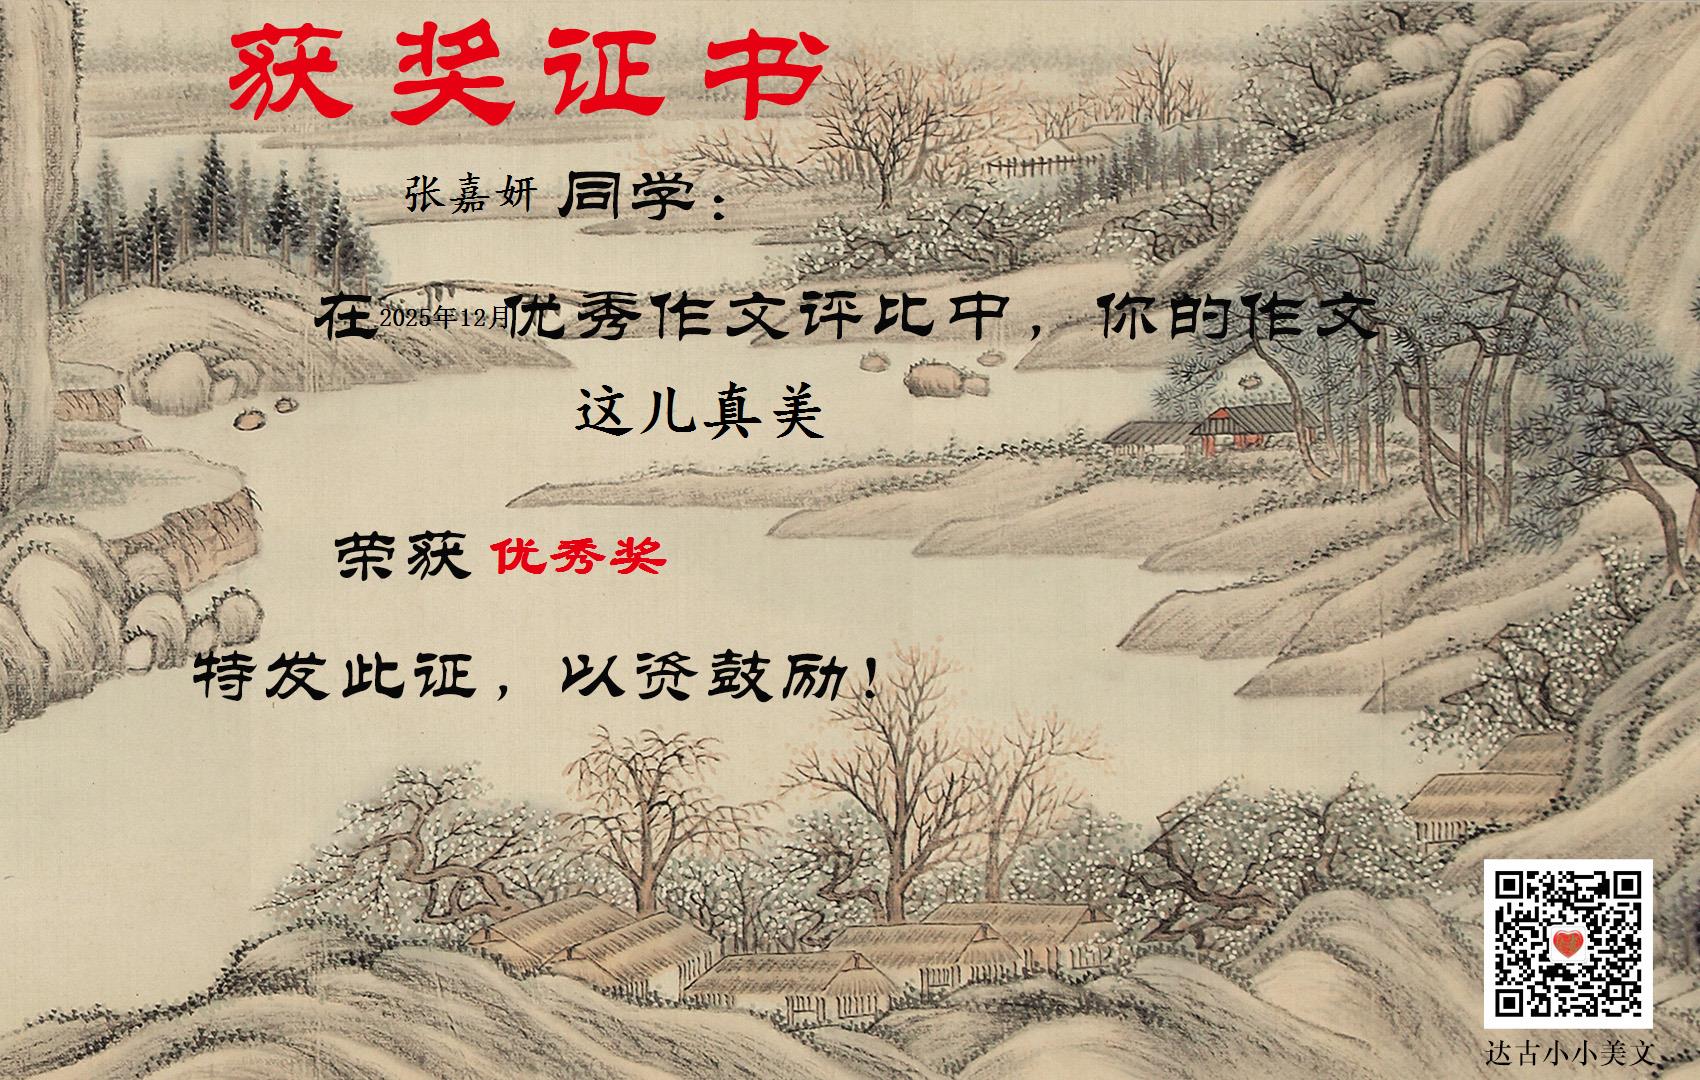 获奖证书
张嘉妍 同学：
在2025年12月优秀作文评比中，你的作文
这儿真美
荣获 优秀奖
特发此证，以资鼓励！
达古小小美文